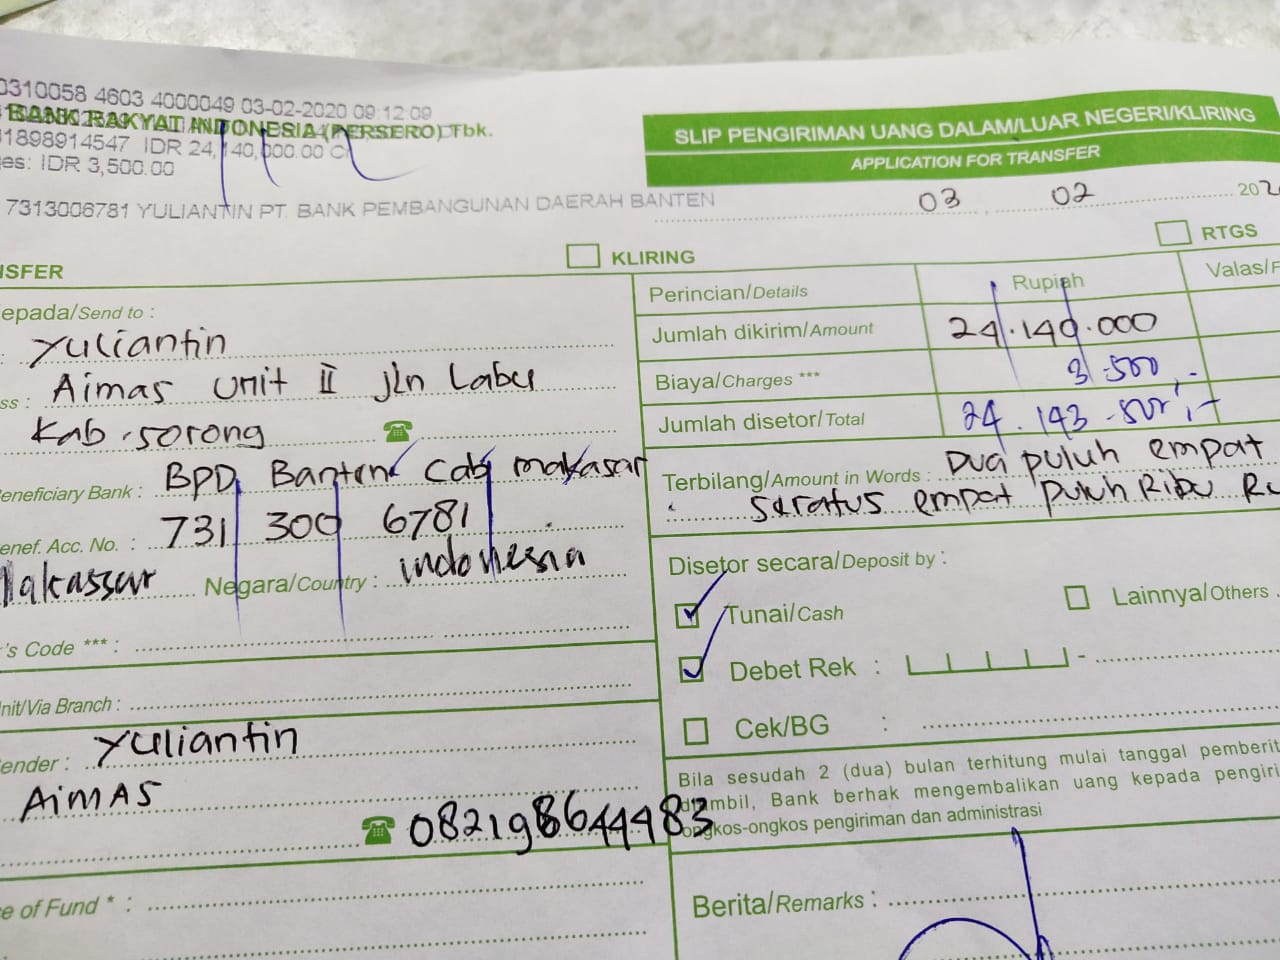 0310058 4603 4000049 03-02-2020 09:12:09
BANK RAKYAT INDONESIA (PERSERO) Tbk.
1898914547 IDR 24,140,000.00
es: IDR 3,500.00
7313006781 YULIANTIN PT. BANK PEMBANGUNAN DAERAH BANTEN
SLIP PENGIRIMAN UANG DALAM/LUAR NEGERI/KLIRING
APPLICATION FOR TRANSFER
03 02 202
NSFER
KLIRING
RTGS
epada/Send to :
: Yuliantin
ss : Aimas Unit II jln Labu
Kab. Sorong
eneficiary Bank : BPD Banten Cab makasar
enef. Acc. No. : 731 300 6781
Makassar Negara/Country : indonesia
's Code *** :
nit/Via Branch :
ender : Yuliantin
AimAS
082198644483
e of Fund * :
Perincian/Details Rupiah Valas/F
Jumlah dikirim/Amount 24.140.000
Biaya/Charges *** 3.500,-
Jumlah disetor/Total 24.143.500,-
Terbilang/Amount in Words : Dua puluh empat
seratus empat puluh Ribu Ru
Disetor secara/Deposit by :
Tunai/Cash
Lainnya/Others
Debet Rek : -
Cek/BG :
Bila sesudah 2 (dua) bulan terhitung mulai tanggal pemberit
diambil, Bank berhak mengembalikan uang kepada pengiri
ongkos-ongkos pengiriman dan administrasi
Berita/Remarks :